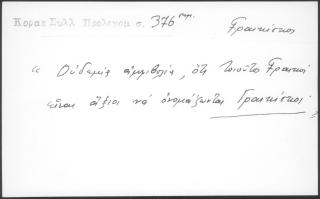 Κοραῆ Συλλ Προλεγομ σ. 376 σημ.
Γραικίσκος
« Οὐδεμία ἀμφιβολία, ὅτι τοιοῦτοι Γραικοὶ
εἶναι ἄξιοι νὰ ὀνομάζωνται Γραικίσκοι.